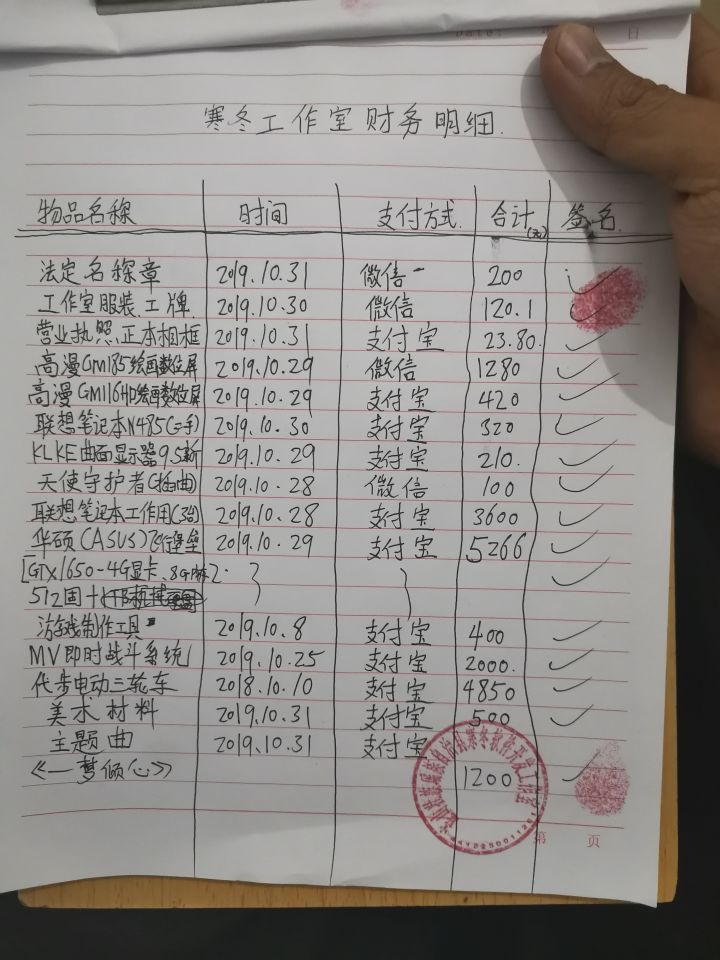 寒冬工作室财务明细.
物品名称 时间 支付方式. 合计(元) 签名.
法定名称章 2019.10.31 微信 200
工作室服装.工牌. 2019.10.30 微信 120.1
营业执照.正本相框 2019.10.31 支付宝 23.80.
高漫GM185绘画数位屏 2019.10.29 微信 1280
高漫GM116HD绘画数位屏 2019.10.29 支付宝 420
联想笔记本N485(二手) 2019.10.30 支付宝 320
KLKE曲面显示器9.5新 2019.10.29 支付宝 210.
天使守护者(插曲) 2019.10.28 微信 100
联想笔记本工作用(3台) 2019.10.28 支付宝 3600
华硕(ASUS)飞行堡垒 2019.10.29 支付宝 5266
[GTX1650-4G显卡、8G内存
512固+1TB机械
游戏制作工具 2019.10.8 支付宝 400
MV即时战斗系统 2019.10.25 支付宝 2000.
代步电动三轮车 2018.10.10 支付宝 4850
美术材料 2019.10.31 支付宝 500
主题曲 2019.10.31 支付宝
《一梦倾心》 1200
寒冬软件开发工作室
第 页